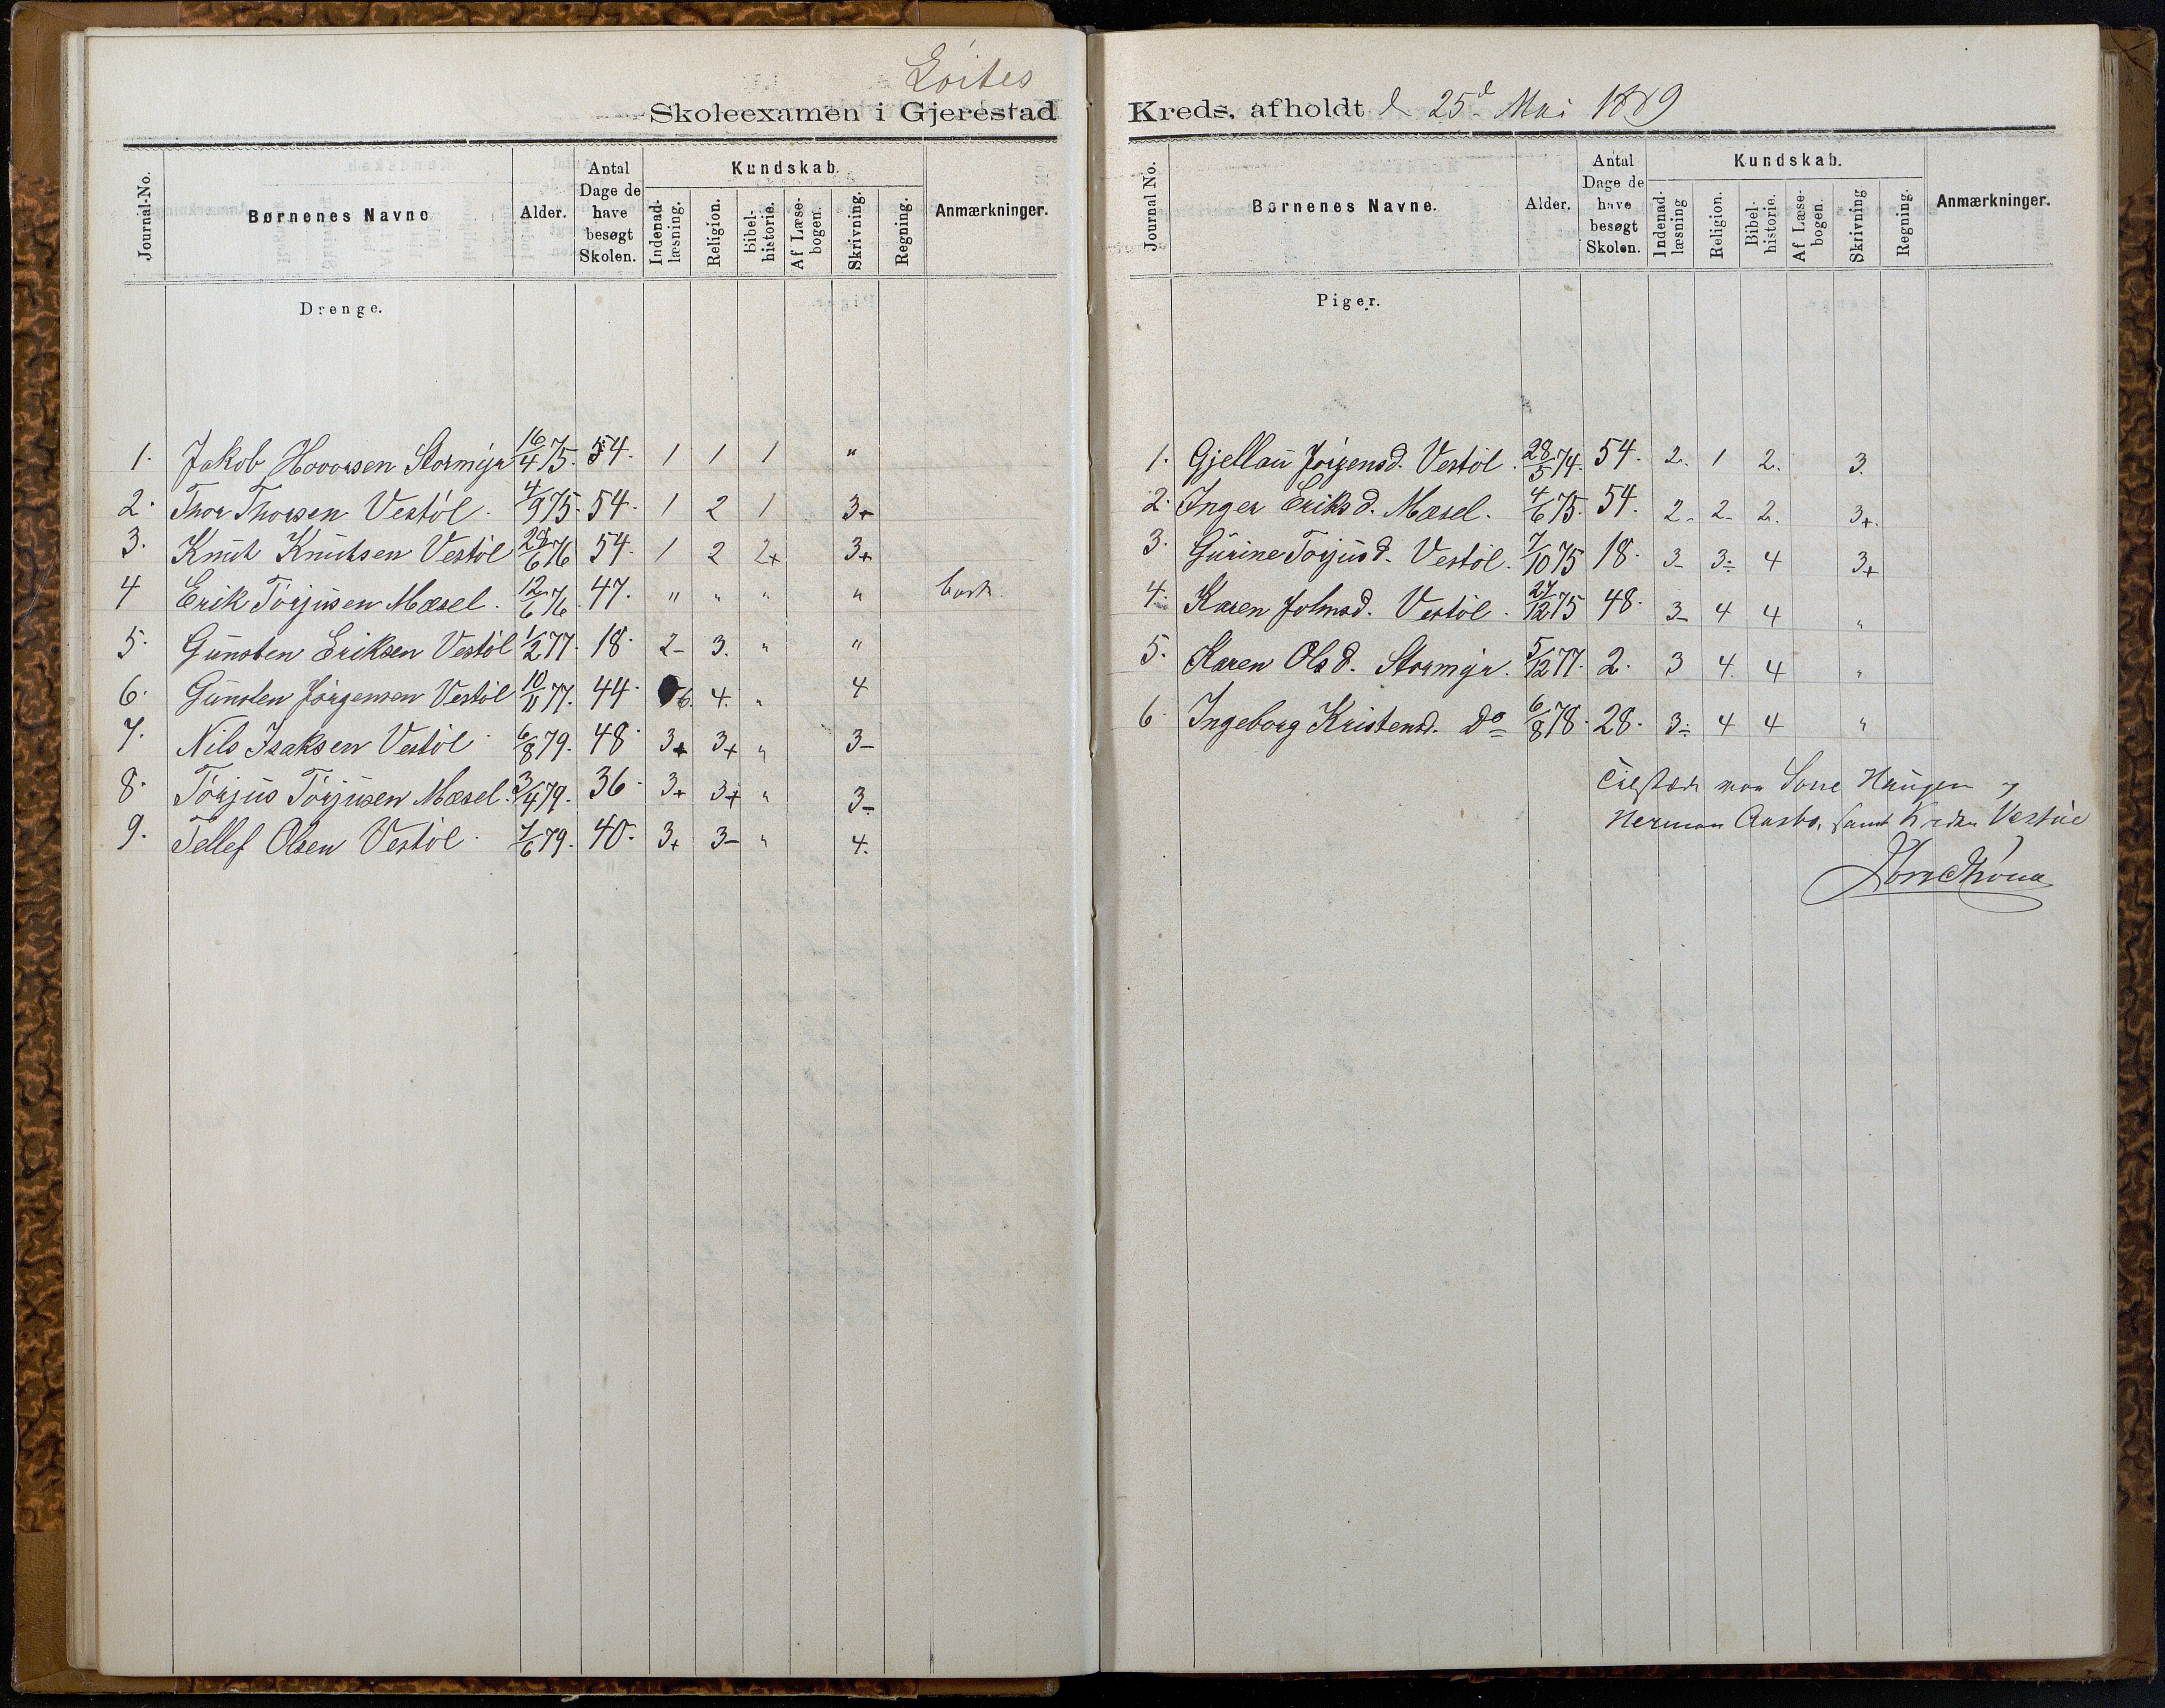 Löites
Skoleexamen i Gjerestad
Journal-No. Børnenes Navne Alder. Antal Dage de have besøgt Skolen. Kundskab. Indenad-læsning. Religion. Bibel-historie. Af Læse-bogen. Skrivning. Regning. Anmærkninger.
Drenge.
1. Jakob Hovorsen Stormyr 16/4 75. 54. 1 1 1 "
2. Thor Thorsen Vestöl. 4/9 75. 54. 1 2 1 3+
3. Knut Knutsen Vestöl 28/6 76 54. 1 2 2+ 3+
4 Erik Torjusen Mæsel. 12/6 76. 47. " " " " bort.
5. Gunsten Eriksen Vestöl 1/2 77. 18. 2- 3. " "
6. Gunsten Jörgensen Vestöl 10/11 77. 44. 4. " 4
7. Nils Isaksen Vestöl 6/8 79. 48. 3+ 3+ " 3-
8. Torjus Torjusen Mæsel. 3/4 79. 36. 3+ 3+ " 3-
9. Tellef Olsen Vestöl. 7/6 79. 40. 3+ 3- " 4.
Kreds, afholdt d 25d Mai 1889
Journal No. Børnenes Navne. Alder. Antal Dage de have besøgt Skolen. Kundskab. Indenad-læsning Religion. Bibel-historie. Af Læse-bogen. Skrivning Regning. Anmærkninger.
Piger.
1. Gjellau Jörgensd. Vestöl. 28/5 74. 54. 2. 1 2. 3.
2. Inger Eriksd. Mæsel. 4/6 75. 54. 2- 2- 2. 3+.
3. Gurine Torjusd. Vestöl. 7/10 75 18. 3- 3- 4 3+
4. Karen Johnsd. Vestöl. 27/12 75 48. 3- 4 4 "
5. Karen Olsd. Stormyr. 5/12 77. 2. 3 4. 4 "
6. Ingeborg Kristensd. Do 6/8 78. 28. 3- 4 4 "
Tilstede var Haugen
Herman Aasbo, samt Vestöl